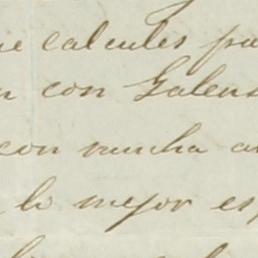 ue calcules pa
n con Galens
con mucha a
lo mejor es